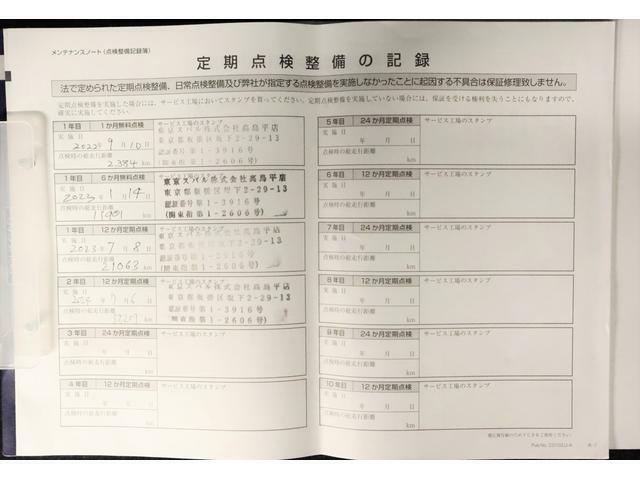 メンテナンスノート(点検整備記録簿)
定期点検整備の記録
法で定められた定期点検整備、日常点検整備及び弊社が指定する点検整備を実施しなかったことに起因する不具合は保証修理致しません。
定期点検整備を実施した場合には、サービス工場においてスタンプを貰ってください。定期点検整備を実施していない場合には、保証を受ける権利を失うことにもなりますので、
確実に実施してください。
1年目 1か月無料点検 サービス工場のスタンプ
実施日
2022年9月10日
点検時の総走行距離
2,334 km
東京スバル株式会社高島平店
東京都板橋区坂下2-29-13
認証番号第1-3916号
(関東指第1-2606号)
1年目 6か月無料点検 サービス工場のスタンプ
実施日
2023年1月14日
点検時の総走行距離
km
東京スバル株式会社高島平店
東京都板橋区坂下2-29-13
認証番号第1-3916号
(関東指第1-2606号)
1年目 12か月定期点検 サービス工場のスタンプ
実施日
2023年7月8日
点検時の総走行距離
21063 km
東京スバル株式会社高島平店
東京都板橋区坂下2-29-13
認証番号第1-3916号
(関東指第1-2606号)
2年目 12か月定期点検 サービス工場のスタンプ
実施日
2024年7月6日
点検時の総走行距離
km
東京スバル株式会社高島平店
東京都板橋区坂下2-29-13
認証番号第1-3916号
(関東指第1-2606号)
3年目 24か月定期点検 サービス工場のスタンプ
実施日
年 月 日
点検時の総走行距離
km
4年目 12か月定期点検 サービス工場のスタンプ
実施日
年 月 日
点検時の総走行距離
km
5年目 24か月定期点検 サービス工場のスタンプ
実施日
年 月 日
点検時の総走行距離
km
6年目 12か月定期点検 サービス工場のスタンプ
実施日
年 月 日
点検時の総走行距離
km
7年目 24か月定期点検 サービス工場のスタンプ
実施日
年 月 日
点検時の総走行距離
km
8年目 12か月定期点検 サービス工場のスタンプ
実施日
年 月 日
点検時の総走行距離
km
9年目 24か月定期点検 サービス工場のスタンプ
実施日
年 月 日
点検時の総走行距離
km
10年目 12か月定期点検 サービス工場のスタンプ
実施日
年 月 日
点検時の総走行距離
km